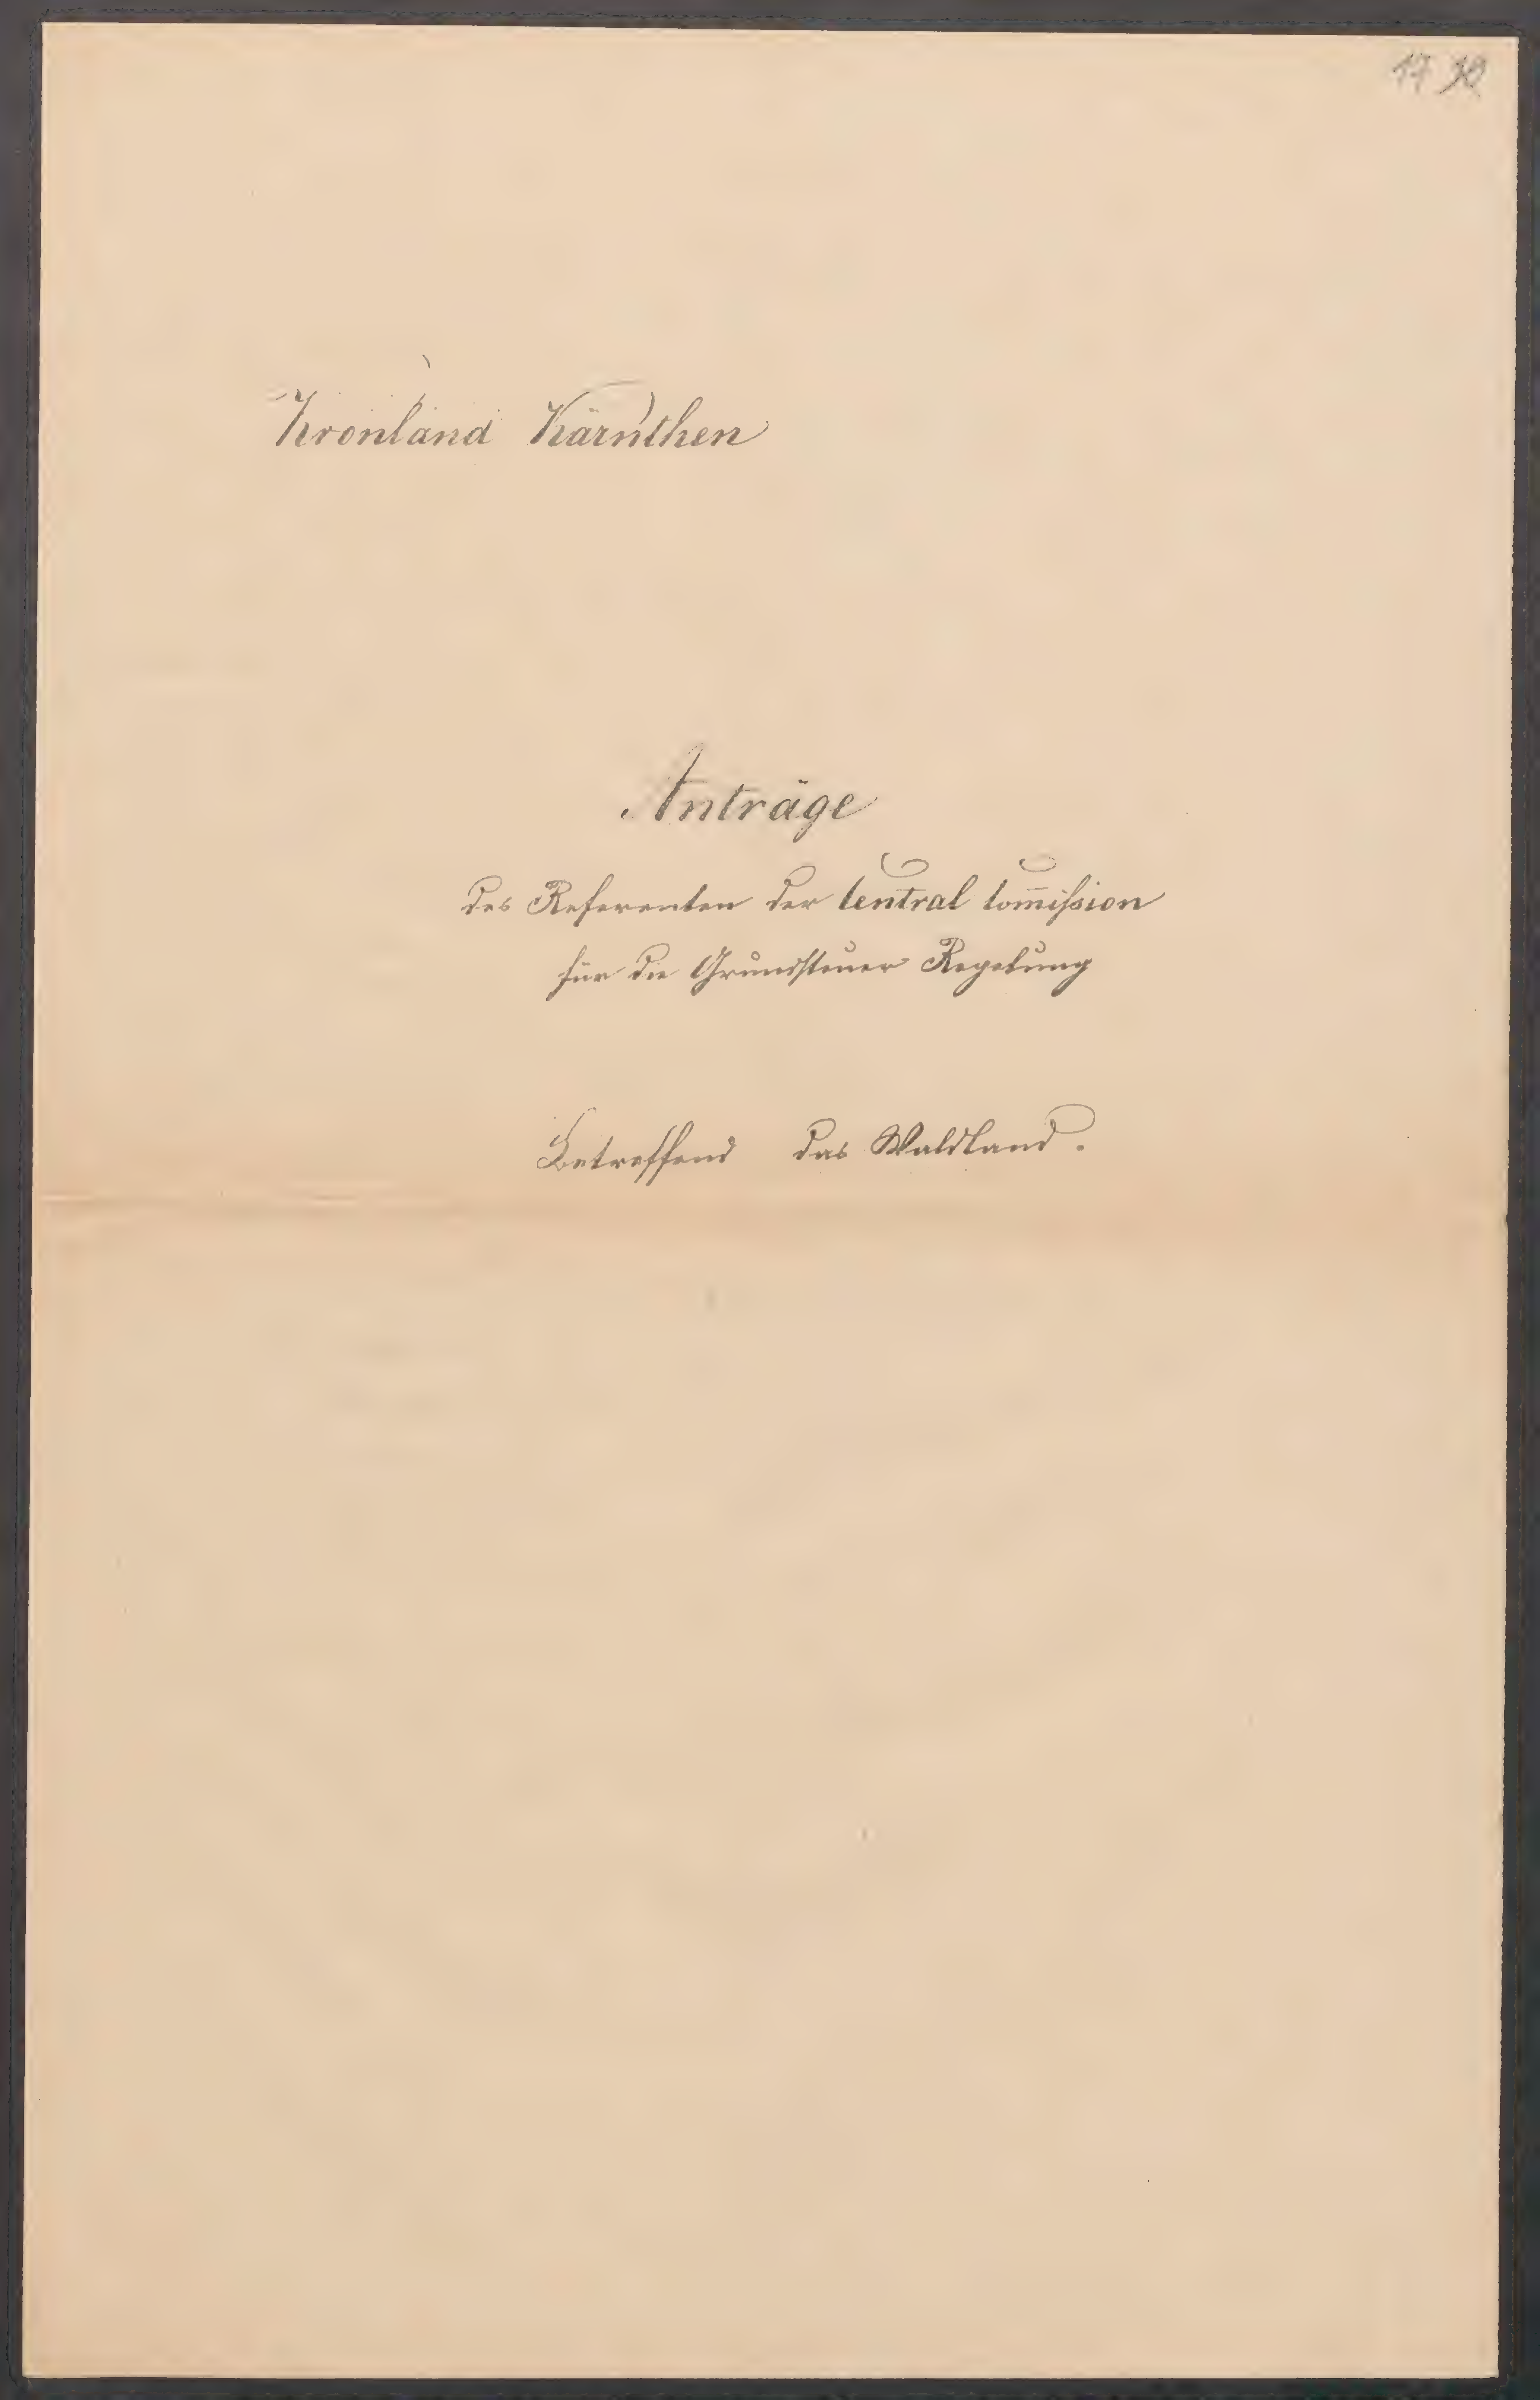 Kronland Kärnthen
Anträge
des Referenten der Central Com̅ission
für die Grundsteuer Regelung
Betreffend das Waldland.